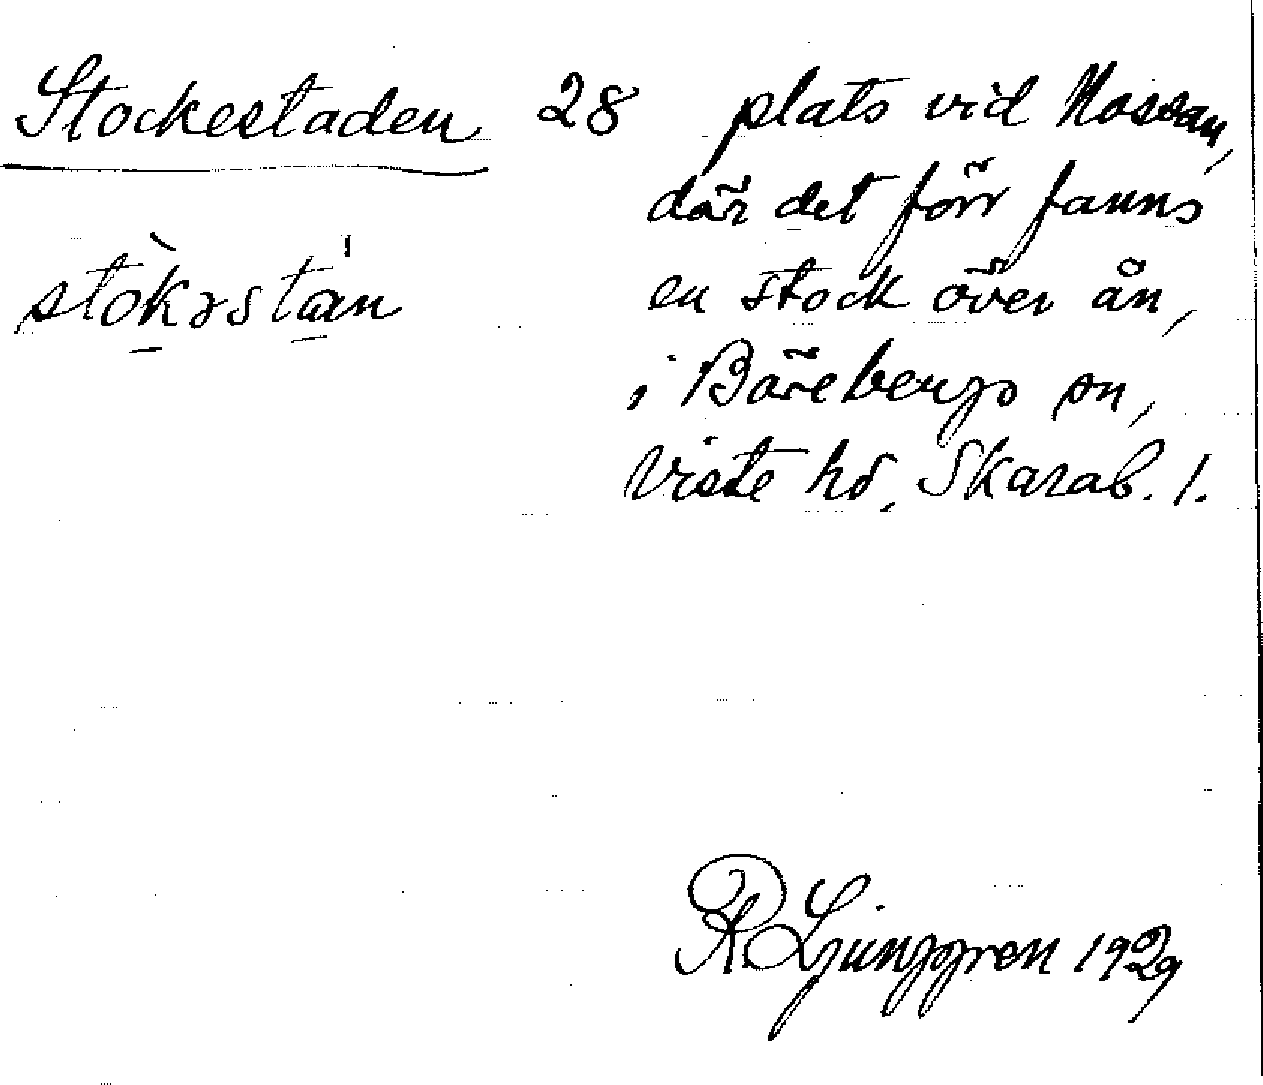 Stockestaden 28 plats vid Nossan,
där det förr fanns
stòkəsta'n
en stock över ån,
i Bärebergs sn,
Viste hd, Skarab. l.
R Ljunggren 1929